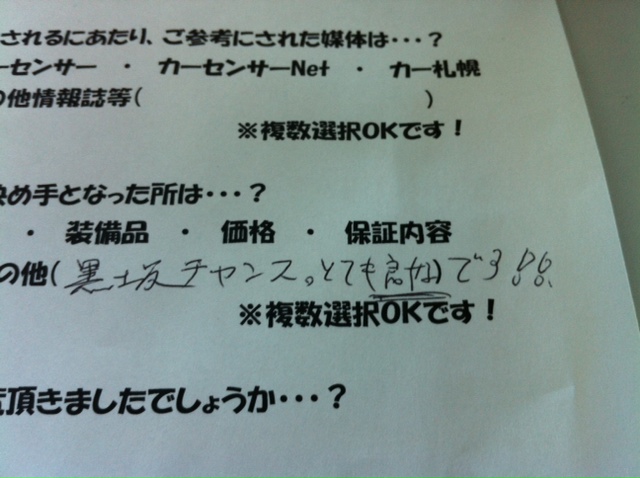 されるにあたり、ご参考にされた媒体は・・・？
ーセンサー ・ カーセンサーNet ・ カー札幌
の他情報誌等( )
※複数選択OKです！
決め手となった所は・・・？
・ 装備品 ・ 価格 ・ 保証内容
の他(黒土反チャンス。とても)です!!!
※複数選択OKです！
頂きましたでしょうか・・・？